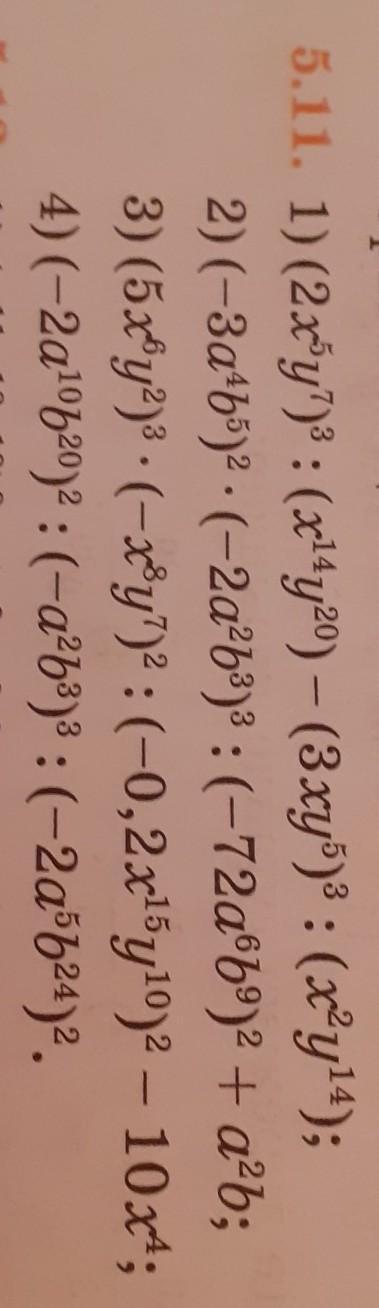 5.11. 1) (2x⁵y⁷)³ : (x¹⁴y²⁰) − (3xy⁵)³ : (x²y¹⁴);
2) (−3a⁴b⁵)² · (−2a²b³)³ : (−72a⁶b⁹)² + a²b;
3) (5x⁶y²)³ · (−x⁸y⁷)² : (−0,2x¹⁵y¹⁰)² − 10x⁴;
4) (−2a¹⁰b²⁰)² : (−a²b³)³ : (−2a⁵b²⁴)².